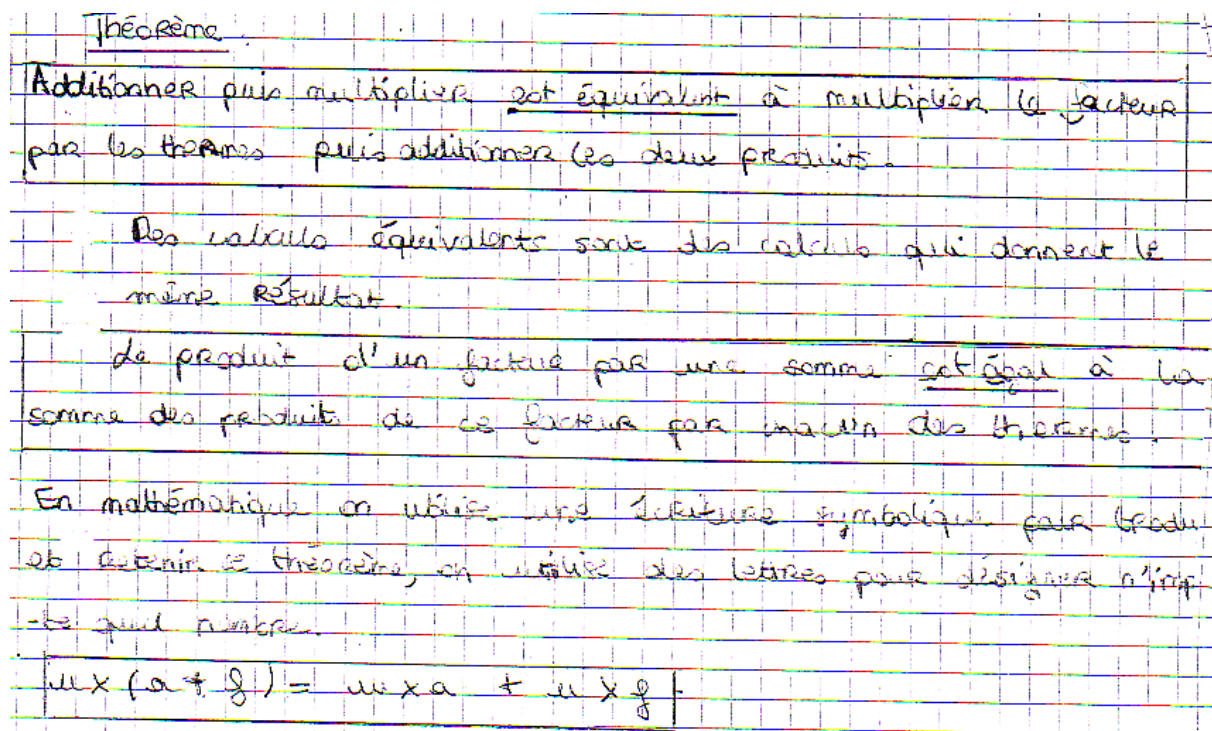 Théorème
Additionner puis multiplier est équivalent à multiplier le facteur
par les thermes puis additionner les deux produits.
Des calculs équivalents sont des calculs qui donnent le
même Résultat.
Le produit d'un facteur par une somme est égal à la
somme des produits de ce facteur par chacun des thermes.
En mathématique on utilise une écriture symbolique pour tradu
et retenir ce théorème, on utilise des lettres pour désigner n'imp
-te quel nombre.
u x (a + g) = u x a + u x g